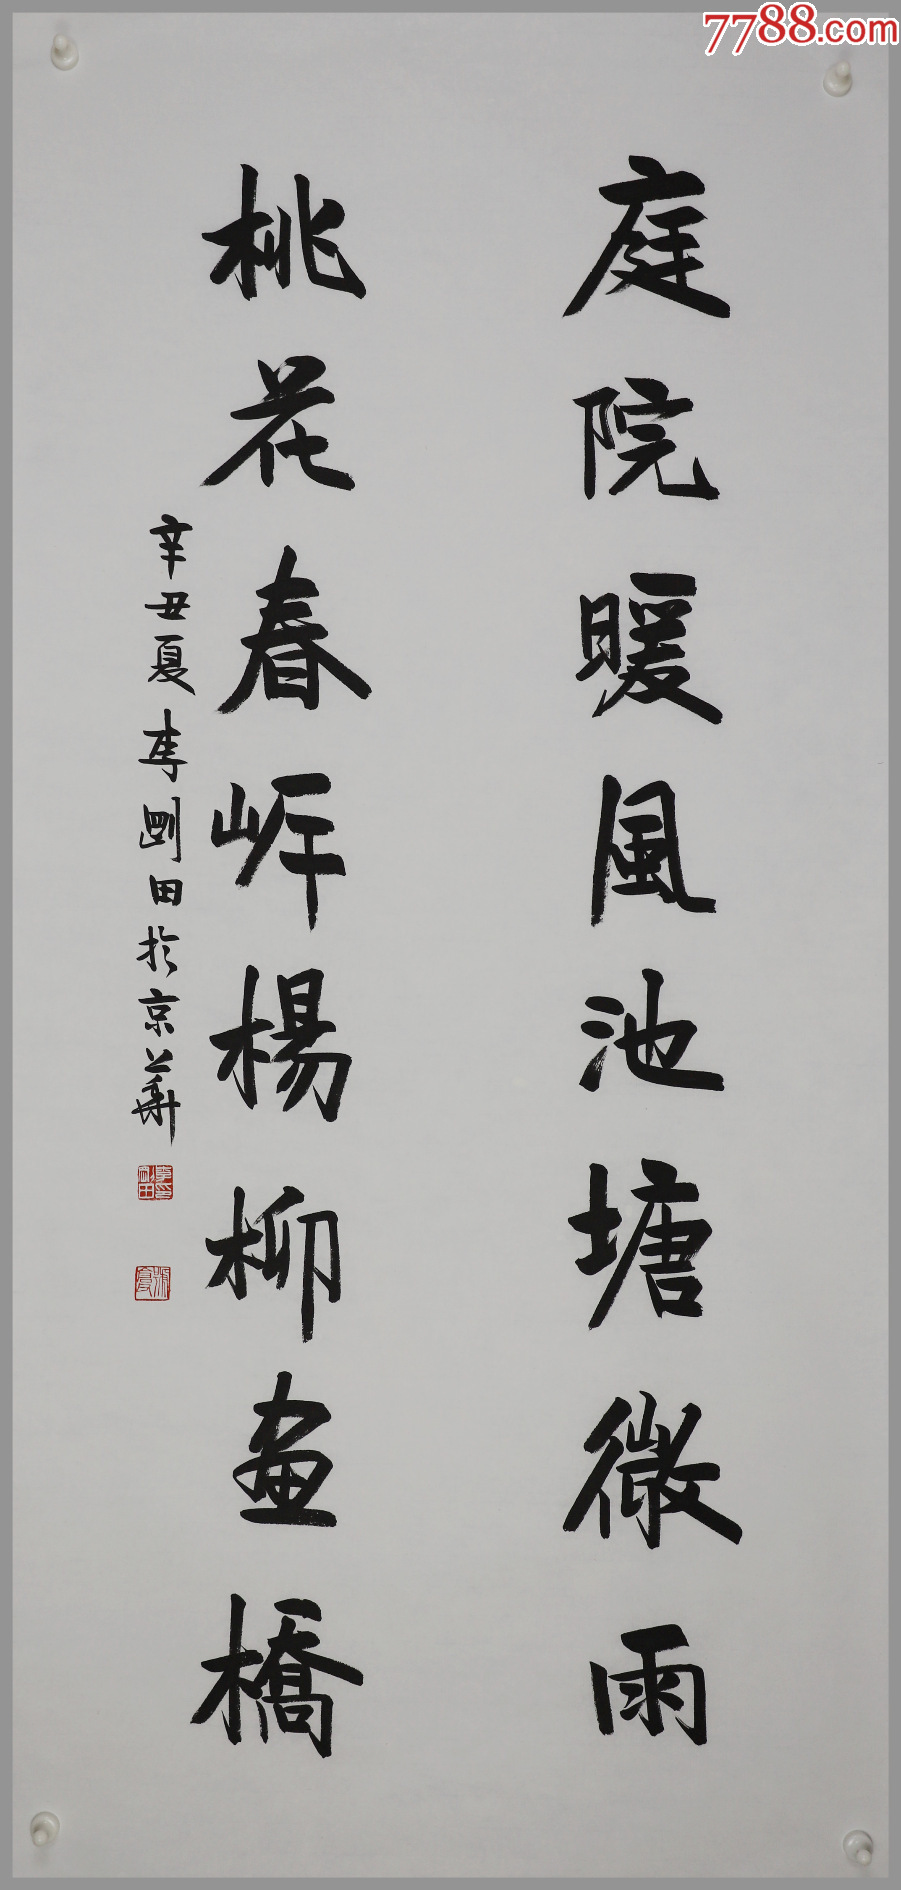 7788.com
庭院暖風池塘微雨
桃花春岍楊柳畫橋
辛丑夏李剛田於京華